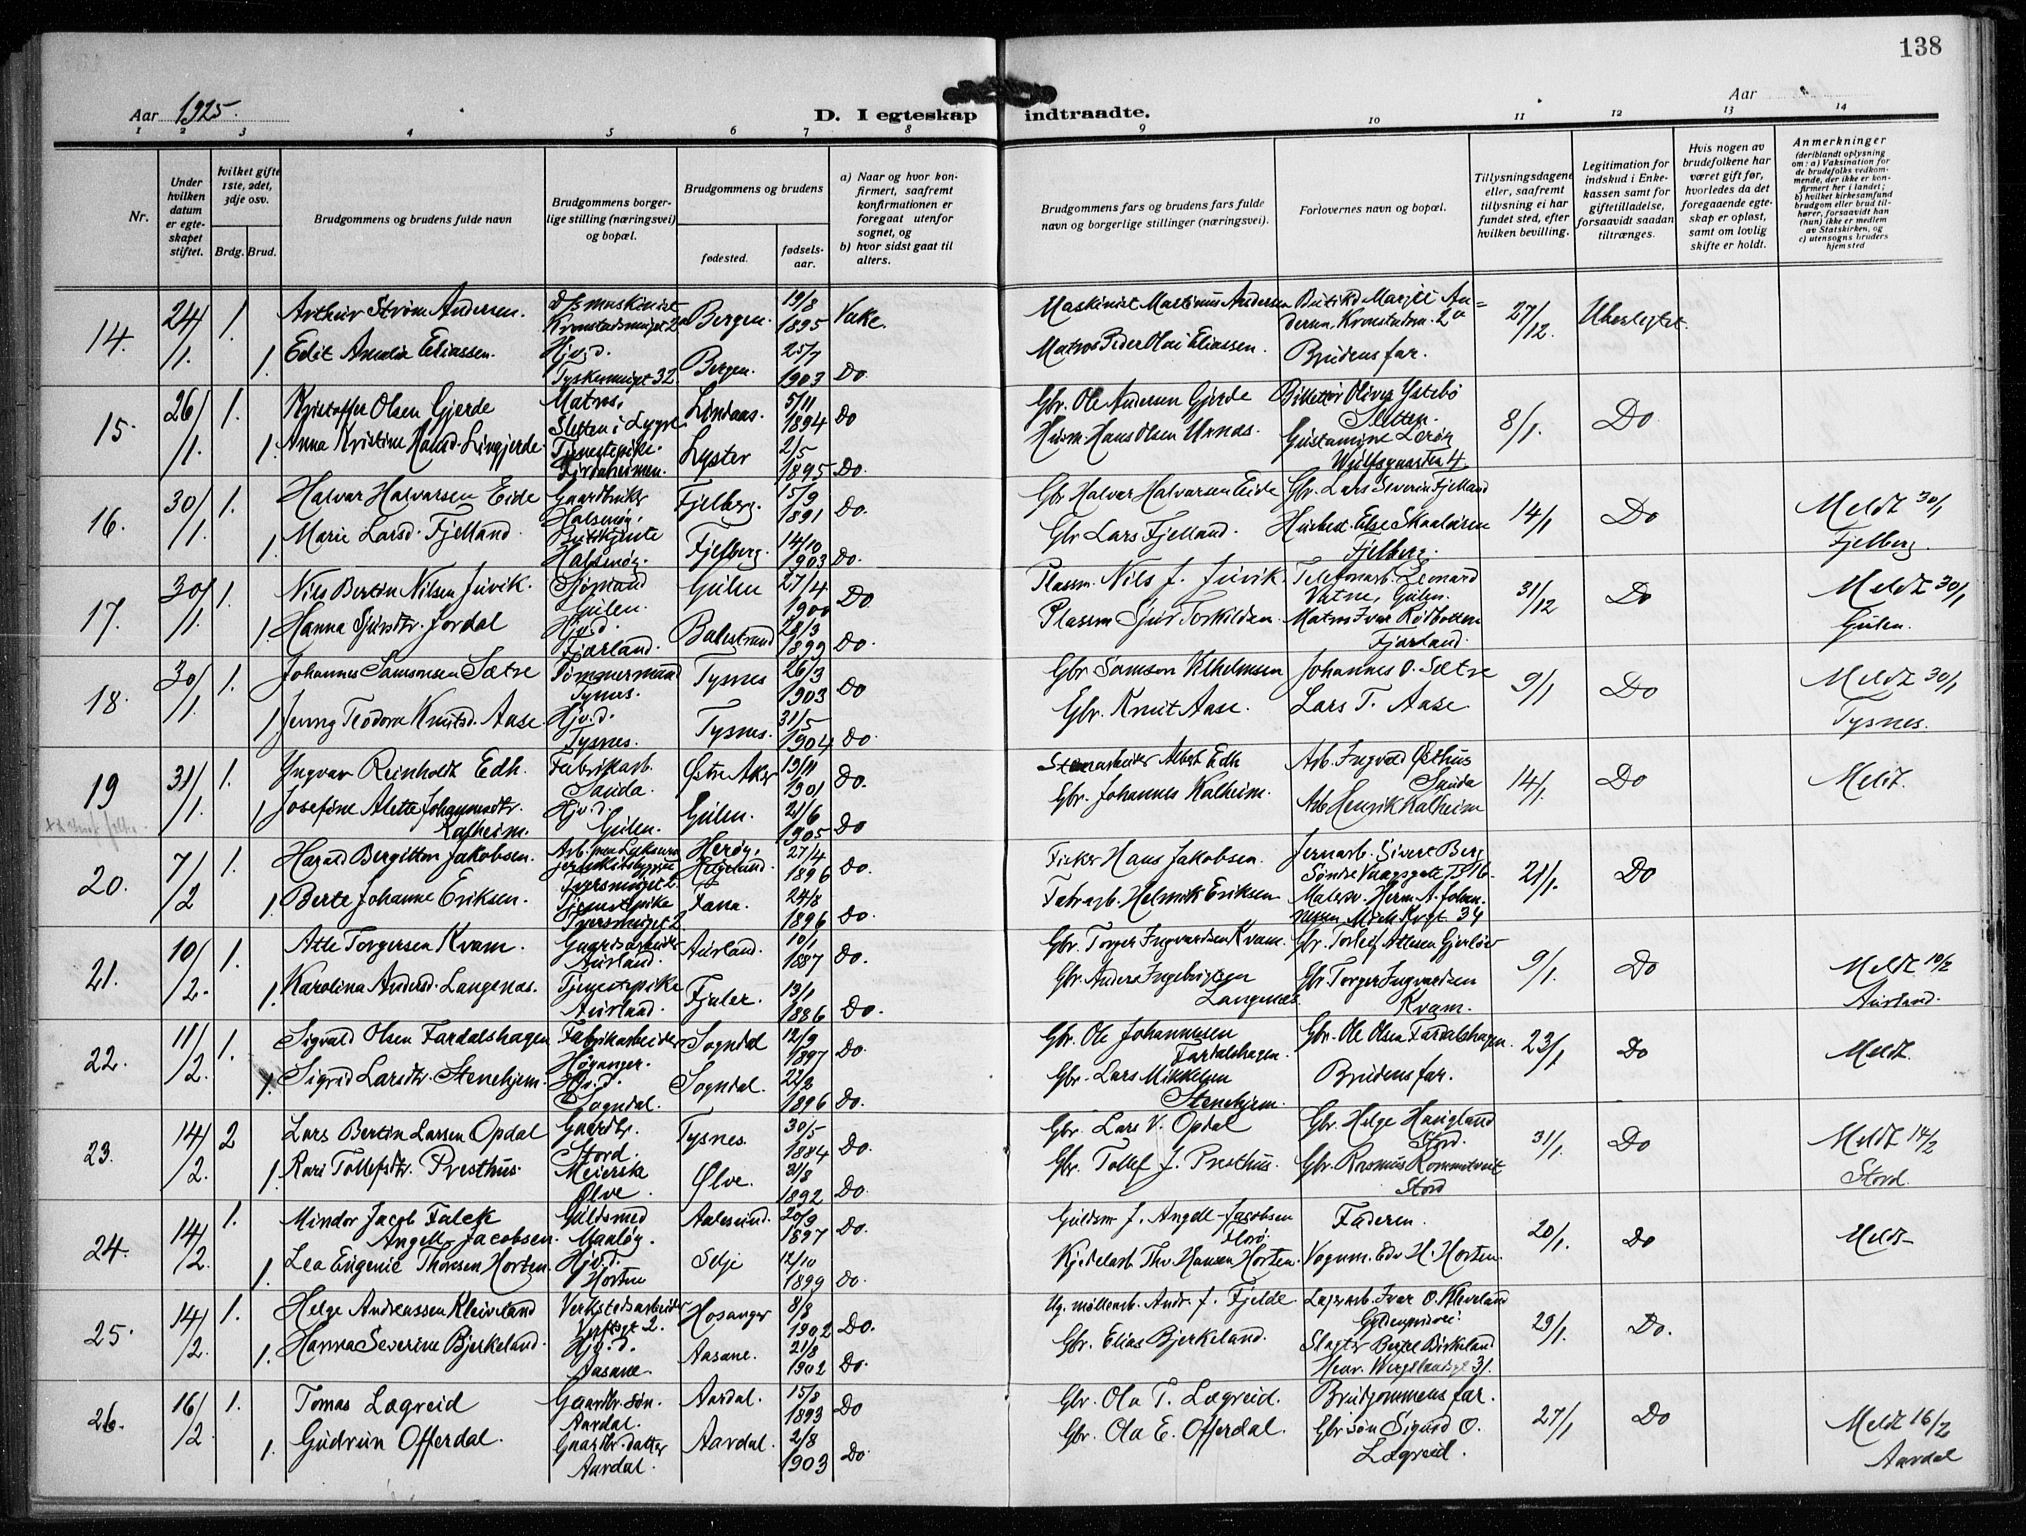 138
Aar 1925.
D. I egteskap indtraadte.
Aar
1 2 3 4 5 6 7 8 9 10 11 12 13 14
Nr.
Under hvilken datum er egteskapet stiftet.
hvilket gifte 1ste, 2det, 3dje osv.
Brdg. Brud.
Brudgommens og brudens fulde navn
Brudgommens borgerlige stilling (næringsvei) og bopæl.
Brudgommens og brudens
fødested.
fødselsaar.
a) Naar og hvor konfirmert, saafremt konfirmationen er foregaat utenfor sognet, og
b) hvor sidst gaat til alters.
Brudgommens fars og brudens fars fulde navn og borgerlige stillinger (næringsvei).
Forlovernes navn og bopæl.
Tillysningsdagene eller, saafremt tillysning ei har fundet sted, efter hvilken bevilling.
Legitimation for indskud i Enkekassen samt for giftetilladelse, forsaavidt saadan tiltrænges.
Hvis nogen av brudefolkene har været gift før, hvorledes da det foregaaende egteskap er opløst, samt om lovlig skifte er holdt.
Anmerkninger
(deriblandt oplysning om: a) Vaksination for de brudefolks vedkommende, der ikke er konfirmert her i landet; b) hvilket kirkesamfund brudgom eller brud tilhører, forsaavidt han (hun) ikke er medlem av Statskirken, og c) utensogns bruders hjemsted
14. 24/1. 1. Arthur Strøm Andersen. Bergen. 19/8 1895 Maskinist Martinus Andersen 27/12.
1. Edit Amalia Eliassen. Hj.v.d. Bergen. 25/7 1903 Do. Matros Peder Olai Eliassen. Brudens far.
15. 26/1. 1. Kristoffer Olsen Gjerde Matros. Lindaas. 5/11 1894 Do Gbr. Ole Andersen Gjerde Sletten. 8/1. Do
1. Anna Kristine Lyster 2/5 1895 Do. Husm. Hans Olsen Urnas.
16. 30/1. 1. Halvar Halvarsen Eide Gaardbruker Halsenøy. Fjelberg. 15/9 1891 Do. Gbr. Halvar Halvarsen Eide Gbr. Lars Severin Fjelland 14/1 Do Meldt 30/1
1. Marie Larsd. Fjelland. Halsenøy. Fjelberg. 14/10 1903 Do. Gbr. Lars Fjelland. Fjelberg. Fjelberg.
17. 30/1. 1. Nils Bertin Nilsen Juvik. Sjømand Gulen. Gulen 27/4 1900 Do. Plassm. Nils J. Juvik. Telefonarb. Leonard Vatne, Gulen. 31/12 Do Meldt 30/1
1. Hanna Sjursdtr. Jordal Hj.v.d. Fjærland. Balestrand 28/3 1899 Do. Plassm Sjur Torkildsen Fjærland. Gulen.
18. 30/1. 1. Johannes Samsonsen Sætre Tømmermand Tysnes. Tysnes 26/3 1903 Do Gbr Samson Vilhelmsen Johannes O. Sætre 9/1 Do Meldt 30/1
1 Jenny Teodora Knutsd. Aase. Hj.v.d. Tysnes. Tysnes. 31/5 1904 Do. Gbr. Knut Aase. Lars T. Aase. Tysnes.
19 31/1. 1. Yngvar Reinholdt Edh. Fabrikarb. Sauda. Østre Aker 13/11 1901 Do. Stenarbeider Albert Edh Arb. Ingvald Østhus Sauda 14/1. Do Meldt.
1 Josefine Alette Johannesdtr. Kalheim. Hj.v.d. Gulen. Gulen. 21/6 1905 Do Gbr. Johannes Kalheim. Arb Henrik Kalheim
20. 7/2 1. Harald Bergitton Jakobsen. Herøy, Helgeland. 27/4 1896 Do. Fisker Hans Jakobsen. Jernarb. Sivert Berg 21/1. Do
1. Berte Johanne Eriksen. Tjenestepike Fana. 24/8 1896 Do. Fabr.arb. Helmik Eriksen
21. 10/2. 1. Atle Torgersen Kvam. Gaardsarbeider Aurland. Aurland. 10/1 1887 Do. Gbr. Torger Ingvardsen Kvam. 9/1. Do Meldt 10/2
1. Karolina Andersd. Langenas. Tjenestepike Aurland. Fjaler. 13/1 1886 Do. Gbr. Anders Ingebrigtsen Langenæs Gbr. Torger Ingvardsen Kvam. Aurland.
22. 11/2. 1. Sigvald Olsen Fardalshagen Fabrikarbeider Høyanger. Sogndal 12/9 1897 Do. Gbr. Ole Johannesen Fardalshagen. Gbr. Ole Olsen Fardalshagen. 23/1 Do Meldt.
1. Sigrid Larsdtr. Stenehjem. Hj.v.d. Sogndal. Sogndal. 1896 Do. Gbr. Lars Mikkelsen Stenehjem. Brudens far.
23. 14/2. 2 Lars Bertin Larsen Opdal Gaardbr. Stord. Tysnes. 30/5 1884 Do. Gbr. Lars V. Opdal Gbr. Helge Haugland Stord. 31/1. Do Meldt 14/2
1. Kari Tollefsdtr. Presthus. Meierske Ølve. Ølve. 31/8 1892 Do. Gbr. Tollef J. Presthus. Stord Stord.
24. 14/2. 1. Mindor Jacob Falck Angell-Jacobsen. Guldsmed Maaløy. Aalesund. 20/9 1897 Do. Guldsm. J. Angell-Jacobsen Florø. Faderen. 20/1. Do Meldt
1. Lea Eugenie Thoresen Horten. Hj.v.d. Horten Selje 12/10 1899 Do. Kjedelarb. Thv Hansen Horten. Vognm. Edv H. Horten.
25. 14/2. 1. Helge Andreassen Kleiveland Verkstedsarbeider Hosanger 8/8 1902 Do. Andr. J. Fjelde Lagerarb. Ivar O. Kleveland 29/1. Do.
1. Hanna Severine Bjerkeland. Hj.v.d. Aasane Aasane. 21/8 1902 Do. Gbr. Elias Bjerkeland. Slagter Bertel Birkeland Henr. Wergelandsgt 31.
26. 16/2 1. Tomas Lægreid Gaardbr. søn. Aardal. Aardal. 15/8 1893 Do Gbr. Ola T. Lægreid. Brudgommens far. 27/1 Do Meldt 16/2
1. Gudrun Offerdal. Gaardbr. datter Aardal. Aardal. 2/8 1903 Do Gbr. Ola E. Offerdal. Gbr søn Sigurd O. Lægreid. Aardal